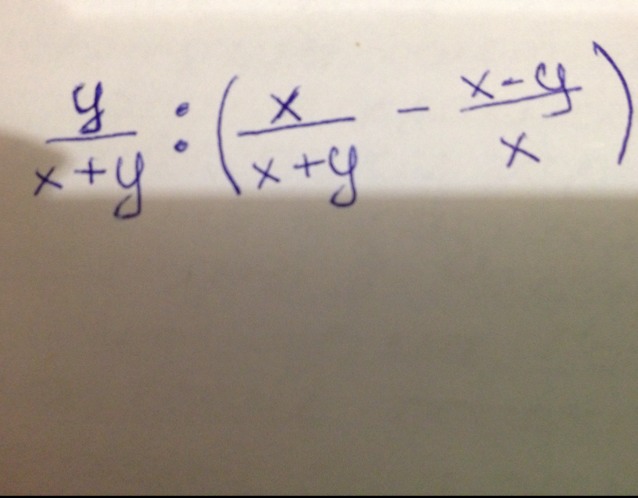 y/(x+y) : (x/(x+y) - (x-y)/x)